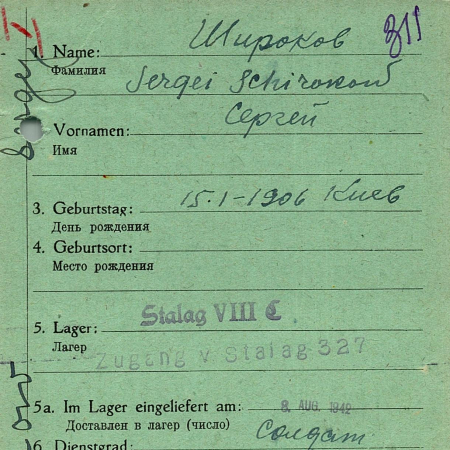 311
1. Name: Широков
Фамилия
Sergei Schirokow
Vornamen: Сергей
Имя
3. Geburtstag: 15.1-1906 Киев
День рождения
4. Geburtsort:
Место рождения
5. Lager: Stalag VIII C
Лагер
Zugang v Stalag 327
5a. Im Lager eingeliefert am: 8. AUG. 1942
Доставлен в лагер (число) солдат
6. Dienstgrad: